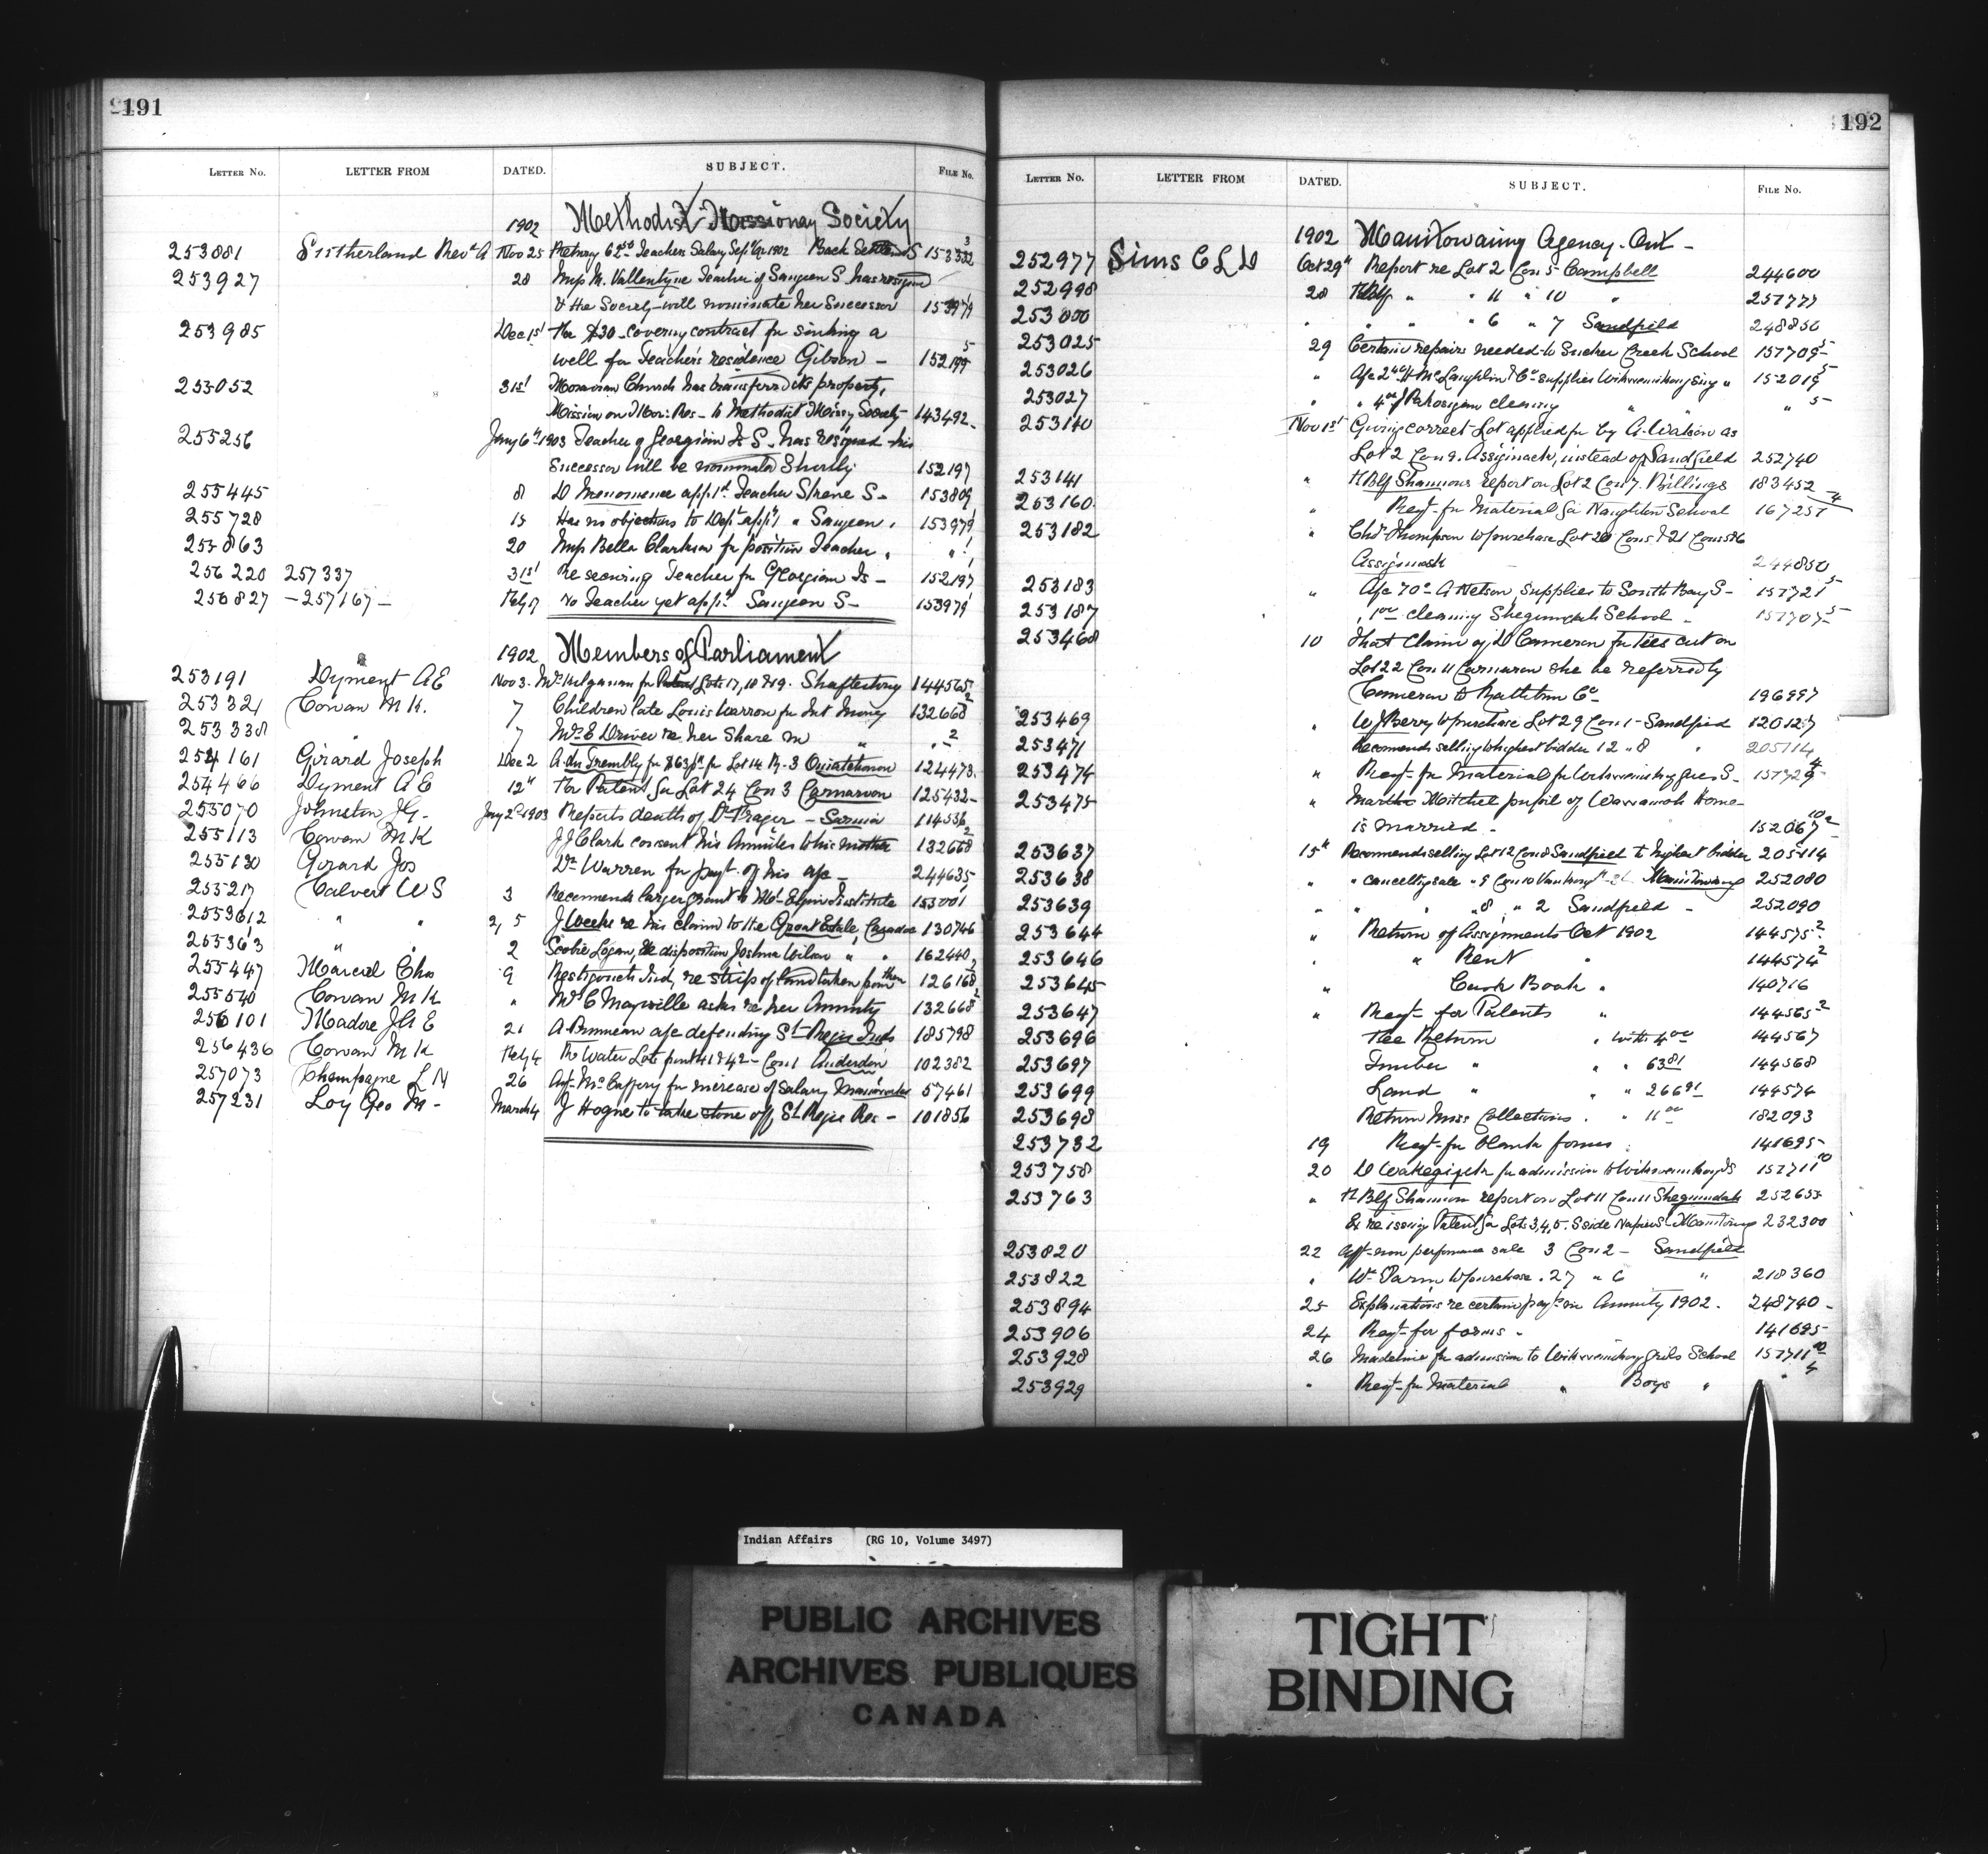 191
LETTER No. LETTER FROM DATED. SUBJECT. FILE No.
1902 Methodist Missionary Society
253881 Sutherland Revd A Nov 25 Returng 62 50 Teachers Salary Sept Qr 1902 Back Settlemt S 153332 3
253927 28 Miss M. Vallentyne Teacher of Saugeen S. has resigned
& the Society will nominate her Successor 153979 1
253985 Dec 1st For $30 covering contract for sinking a
well for Teacher's residence Gibson - 152199 5
255052 31st Moravian Church has transferred its property,
Mission on Mor: Res - to Methodist Missy Society 143492
255256 Jany 6th 1903 Teacher of Georgina Is S. has resigned his
Successor will be nominated Shortly 152197
255445 8 D Menomenee appd Teacher S 153809
255728 15 Has no objections to Dept appg " Saugeen " 153979 1
20 Miss Bella Clarkson for position Teacher " " 1
256220 257337 31st Re securing Teacher for Georgina Is - 152197
256827 - 257167 - Feby 17 no Teacher yet appd Saugeen S - 153979 1
1902 Members of Parliament
253191 Dyment A E Nov 3 for Patent Lots 17, 18 & 19 Shaftesbury 144565
253321 Cowan M K. 7 Children late Louis Warron for Int Money 132668 2
253338 " 7 Mrs E Driver re her Share in " " 2
254161 Girard Joseph Dec 2 A. du Trembly for for Lot 14 R. 3 Ouiatchouan 124473
254466 Dyment A E 12th For Patent for Lot 24 Con 3 Carnarvon 125432
255070 Johnston J G. Jany 2d 1903 Reports death of Dr Fraser - Sarnia 114536
255113 Cowan M K J J Clark consent his Annuities to his mother 132668 2
255130 Girard Jos Dr Warren for payt. of his a/c - 244635
255217 Calvert W S 3 Recommends larger grant to Mt Elgin Institute 153001 1
255362 " " 2, 5 J Weeke re his claim to the Groat Estate, Caradoc 130746
255363 " " 2 Scobie Logan, re disposition Joshua Wilson " " 162440
255447 Marcil Chas 9 Restigouche Inds re strip of land taken from them 126168
255540 Cowan M K " Mrs C Mayville asks re her Annuity 132668 2
256101 Madore J A E 21 A Bruneau a/c defending St Regis Inds 185798
256436 Cowan M K Feby 4 For Water Lots pt 41 & 42 - Con 1 Anderdon 102382
257073 Champagne L N 26 Agt McCaffery for increase of Salary Maniwaki 57461
257231 Loy Geo M - March 4 J Hogue to take stone off St Regis Res - 101856
192
LETTER No. LETTER FROM DATED. SUBJECT. FILE No.
1902 Manitowaning Agency - Ont -
252977 Sims C L D Oct 29th Report re Lot 2 Con 5 Campbell 244600
252998 28 " " 11 " 10 " 251777
253000 " " " " 6 " 7 Sandfield 248856
253025 29 Certain repairs needed to Sucker Creek School 151709 5
253026 " A/c 2 40 H McLaughlin & Co supplies Wikwemikongsing " 152019 5
253027 " " 4 00 J Pahosigan cleaning " " " 5
253140 Nov 1st Giving correct Lot applied for by A. Watson as
Lot 2 Con 9. Assiginack, instead of Sandfield 252740
253141 " Shannons report on Lot 2 Con 7. Billings 183452
253160 " Reqt. for Material for Naughton School 167251 4
253182 " Chs Thompson to purchase Lot 20 Con 5 & 21 Cons 5 & 6
Assiginack 244850
253183 " A/c 70c A Nelson, supplies to South Bay S - 151721 5
253187 " 1 00 cleaning Sheguindah School - 151707 5
253468 10 That Claim of D Cameron for ties cut on
Lot 22 Con 11 Carnarvon she be referred by
Cameron to Co 196997
253469 " W J Berry to purchase Lot 29 Con 1 - Sandfield 120127
253471 Recomends selling to highest bidder 12 " 8 " 205114
253474 " Reqt. for Material for Wikwemikong girls S - 151729 4
253475 " Martha Mitchel pupil of Wawanosh Home -
is married - 152067
253637 15th Recommends selling Lot 12 Con 8 Sandfield to highest bidder 205114
253638 " " cancellg sale " 9 Con 10 Manitowaning 252080
253639 " " " " 8 " 2 Sandfield - 252090
253644 " Return of Assignments Oct 1902 144575 2
253646 " " Rent " 144574 2
253645 " Cash Book " 140716
253647 " Reqt. for Patents " 144565 2
253696 Fee Return " with 4 00 144567
253697 Timber " " " 63 81 144568
253699 Land " " " 266 91 144574
253698 Return Misc Collections " " 11 00 182093
253732 19 Reqt. for blank forms " 141695
253758 20 for admission to Wikwemikong IS 151711 10
253763 " Shannon report on Lot 11 Con 11 Sheguindah 252655
re issuing Patent for Lots 3, 4, 5. S side Napier St Manitowg 232300
253820 22 Afft. non performance sale 3 Con 2 - Sandfield
253822 " Wm Parm to purchase . 27 " 6 " 218360
253894 25 Explanations re certain payts in Annuity 1902 . 248740
253906 24 Reqt. for forms - 141695
253928 26 Madeline for admission to Wikwemikong girls School 151711 10
253929 " Reqt. for Material " Boys " " 4
Indian Affairs (RG 10, Volume 3497)
PUBLIC ARCHIVES
ARCHIVES PUBLIQUES
CANADA
TIGHT
BINDING